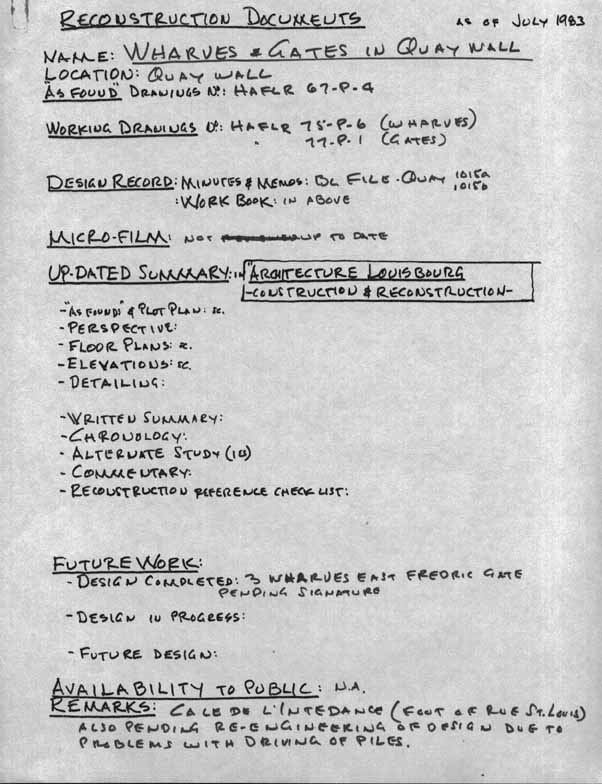 RECONSTRUCTION DOCUMENTS AS OF JULY 1983
NAME: WHARVES & GATES IN QUAY WALL
LOCATION: QUAY WALL
"AS FOUND" DRAWINGS Nº: HAFLR 67-P-4
WORKING DRAWINGS Nº: HAFLR 75-P-6 (WHARVES)
" 77-P-1 (GATES)
DESIGN RECORD: MINUTES & MEMOS: BL FILE - QUAY 1015a
1015b
: WORK BOOK: IN ABOVE
MICRO-FILM: NOT UP TO DATE
UP-DATED SUMMARY: in "ARCHITECTURE LOUISBOURG
-CONSTRUCTION & RECONSTRUCTION-
- "AS FOUND" & PLOT PLAN: sc.
- PERSPECTIVE:
- FLOOR PLANS: sc.
- ELEVATIONS: sc.
- DETAILING:
- WRITTEN SUMMARY:
- CHRONOLOGY:
- ALTERNATE STUDY (ies)
- COMMENTARY:
- RECONSTRUCTION REFERENCE CHECK LIST:
FUTURE WORK:
- DESIGN COMPLETED: 3 WHARVES EAST FREDRIC GATE
PENDING SIGNATURE
- DESIGN IN PROGRESS:
- FUTURE DESIGN:
AVAILABILITY TO PUBLIC: N.A.
REMARKS: CALE DE L'INTEDANCE (FOOT OF RUE ST. LOUIS)
ALSO PENDING RE-ENGINEERING OF DESIGN DUE TO
PROBLEMS WITH DRIVING OF PILES.